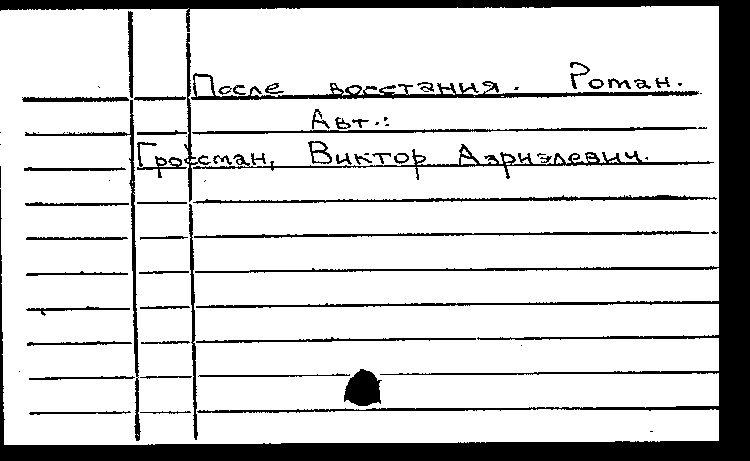 После восстания. Роман.
Авт.:
Гроссман, Виктор Азриэлевич.